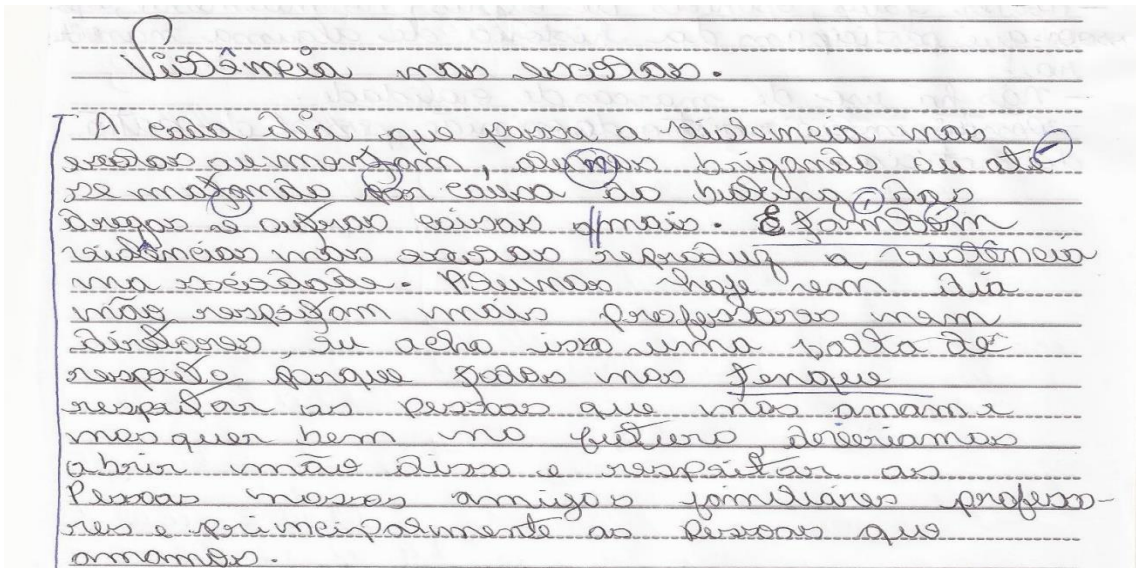 Violência nas escolas.
A cada dia que passa a violência nas
escolas aumentam, alunos brigando ou até
se matando por causa de bulling, das
drogas e outras coisas a mais. E também
violências nas escolas reproduz a violência
na sociedade. Alunos hoje em dia
não respeitam mais professores nem
diretores, eu acho isso uma falta de
respeito porque todos nos tenque
respeitar as pessoas que nos amam e
nos quer bem no futuro deveriamos
abrir mão disso e respeitar as
Pessoas nossos amigos familiares profeso-
res e principalmente as pessoas que
amamos.